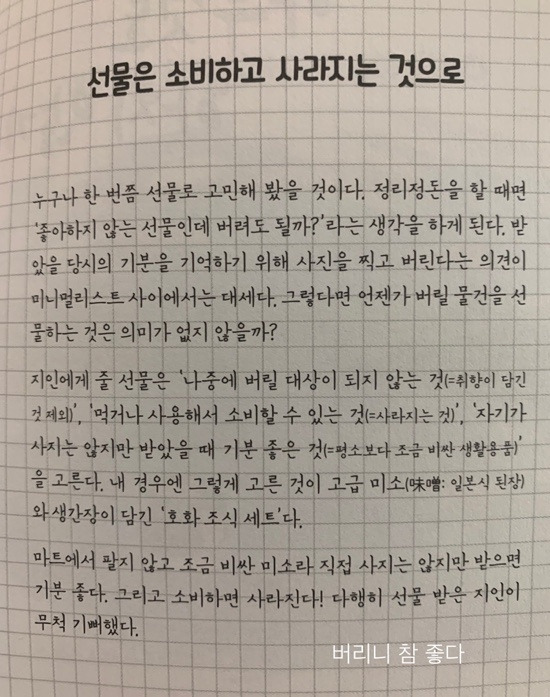 선물은 소비하고 사라지는 것으로
누구나 한 번쯤 선물로 고민해 봤을 것이다. 정리정돈을 할 때면
‘좋아하지 않는 선물인데 버려도 될까?’라는 생각을 하게 된다. 받
았을 당시의 기분을 기억하기 위해 사진을 찍고 버린다는 의견이
미니멀리스트 사이에서는 대세다. 그렇다면 언젠가 버릴 물건을 선
물하는 것은 의미가 없지 않을까?
지인에게 줄 선물은 ‘나중에 버릴 대상이 되지 않는 것(=취향이 담긴
것 제외)’, ‘먹거나 사용해서 소비할 수 있는 것(=사라지는 것)’, ‘자기가
사지는 않지만 받았을 때 기분 좋은 것(=평소보다 조금 비싼 생활용품)’
을 고른다. 내 경우엔 그렇게 고른 것이 고급 미소(味噌: 일본식 된장)
와 생간장이 담긴 ‘호화 조식 세트’다.
마트에서 팔지 않고 조금 비싼 미소라 직접 사지는 않지만 받으면
기분 좋다. 그리고 소비하면 사라진다! 다행히 선물 받은 지인이
무척 기뻐했다.
버리니 참 좋다